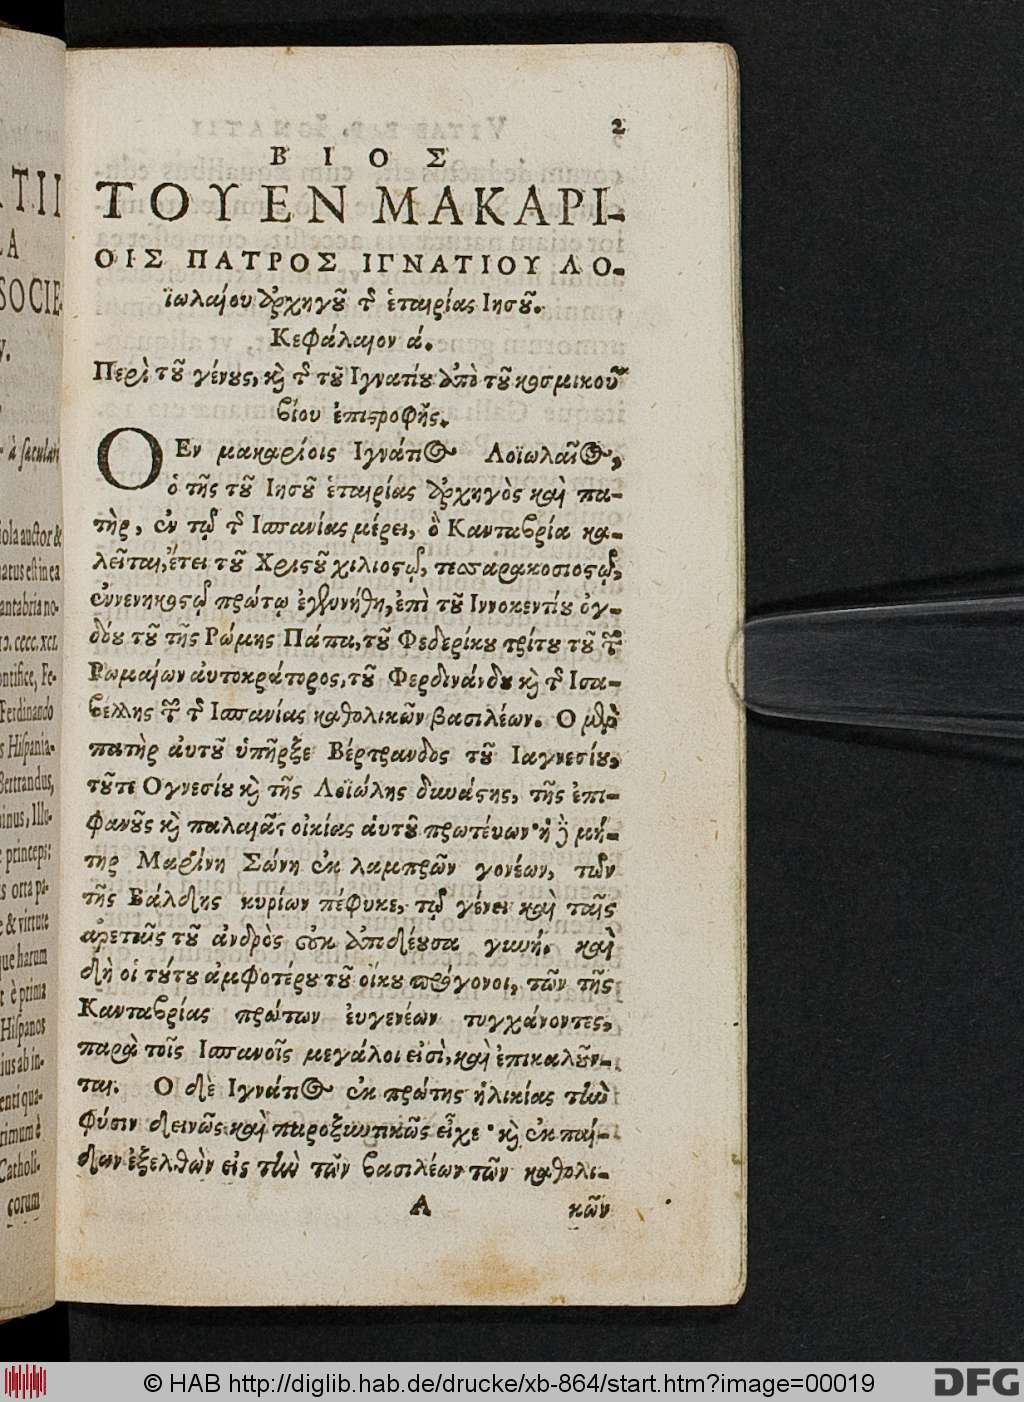 2
ΒΙΟΣ
ΤΟΥ ΕΝ ΜΑΚΑΡΙ-
ΟΙΣ ΠΑΤΡΟΣ ΙΓΝΑΤΙΟΥ ΛΟ-
ϊωλαίου ἀρχηγοῦ τῆς ἑταιρίας Ιησοῦ.
Κεφάλαιον ά.
Περὶ τοῦ γένους, καὶ τῆς τοῦ Ιγνατίου ἀπὸ τοῦ κοσμικοῦ
βίου ἐπιστροφῆς.
Ο Εν μακαρίοις Ιγνάτιος Λοϊωλαῖος,
ὁ τῆς τοῦ Ιησοῦ ἑταιρίας ἀρχηγὸς καὶ πα-
τὴρ, ἐν τῷ τῆς Ισπανίας μέρει, ὃ Κανταβρία κα-
λεῖται, ἔτει τοῦ Χριστοῦ χιλιοστῷ, τεσσαρακοσιοστῷ,
ἐννενηκοστῷ πρώτῳ ἐγεννήθη, ἐπὶ τοῦ Ιννοκεντίου ὀγ-
δόου τοῦ τῆς Ρώμης Πάπα, τοῦ Φεδερίκου τρίτου τοῦ τῶν
Ρωμαίων αὐτοκράτορος, τοῦ Φερδινάνδου καὶ τῆς Ισα-
βέλλης τῶν τῆς Ισπανίας καθολικῶν βασιλέων. Ο μὲν
πατὴρ αὐτοῦ ὑπῆρξε Βέρτρανδος τοῦ Ιαγνεσίου,
τοῦτε Ογνεσίου καὶ τῆς Λοϊώλης δυνάστης, τῆς ἐπι-
φανοῦς καὶ παλαιᾶς οἰκίας αὑτοῦ πρωτεύων· ἡ δὲ μή-
τηρ Μαρίνη Σώνη ἐκ λαμπρῶν γονέων, τῶν
τῆς Βάλδης κυρίων πέφυκε, τῷ γένει καὶ ταῖς
ἀρεταῖς τοῦ ἀνδρὸς οὐκ ἀπιδέουσα γυνή. καὶ
δὴ οἱ τούτου ἀμφοτέρου τοῦ οἴκου πρόγονοι, τῶν τῆς
Κανταβρίας πρώτων ἐυγενέων τυγχάνοντες,
παρὰ τοῖς Ισπανοῖς μεγάλοι εἰσὶ, καὶ ἐπικαλοῦν-
ται. Ο δὲ Ιγνάτιος ἐκ πρώτης ἡλικίας τὴν
φύσιν δεινῶς καὶ παροξυντικῶς εἶχε· καὶ ἐκ παί-
δων ἐξελθὼν εἰς τὴν τῶν βασιλέων τῶν καθολι-
Α κῶν
© HAB http://diglib.hab.de/drucke/xb-864/start.htm?image=00019
DFG